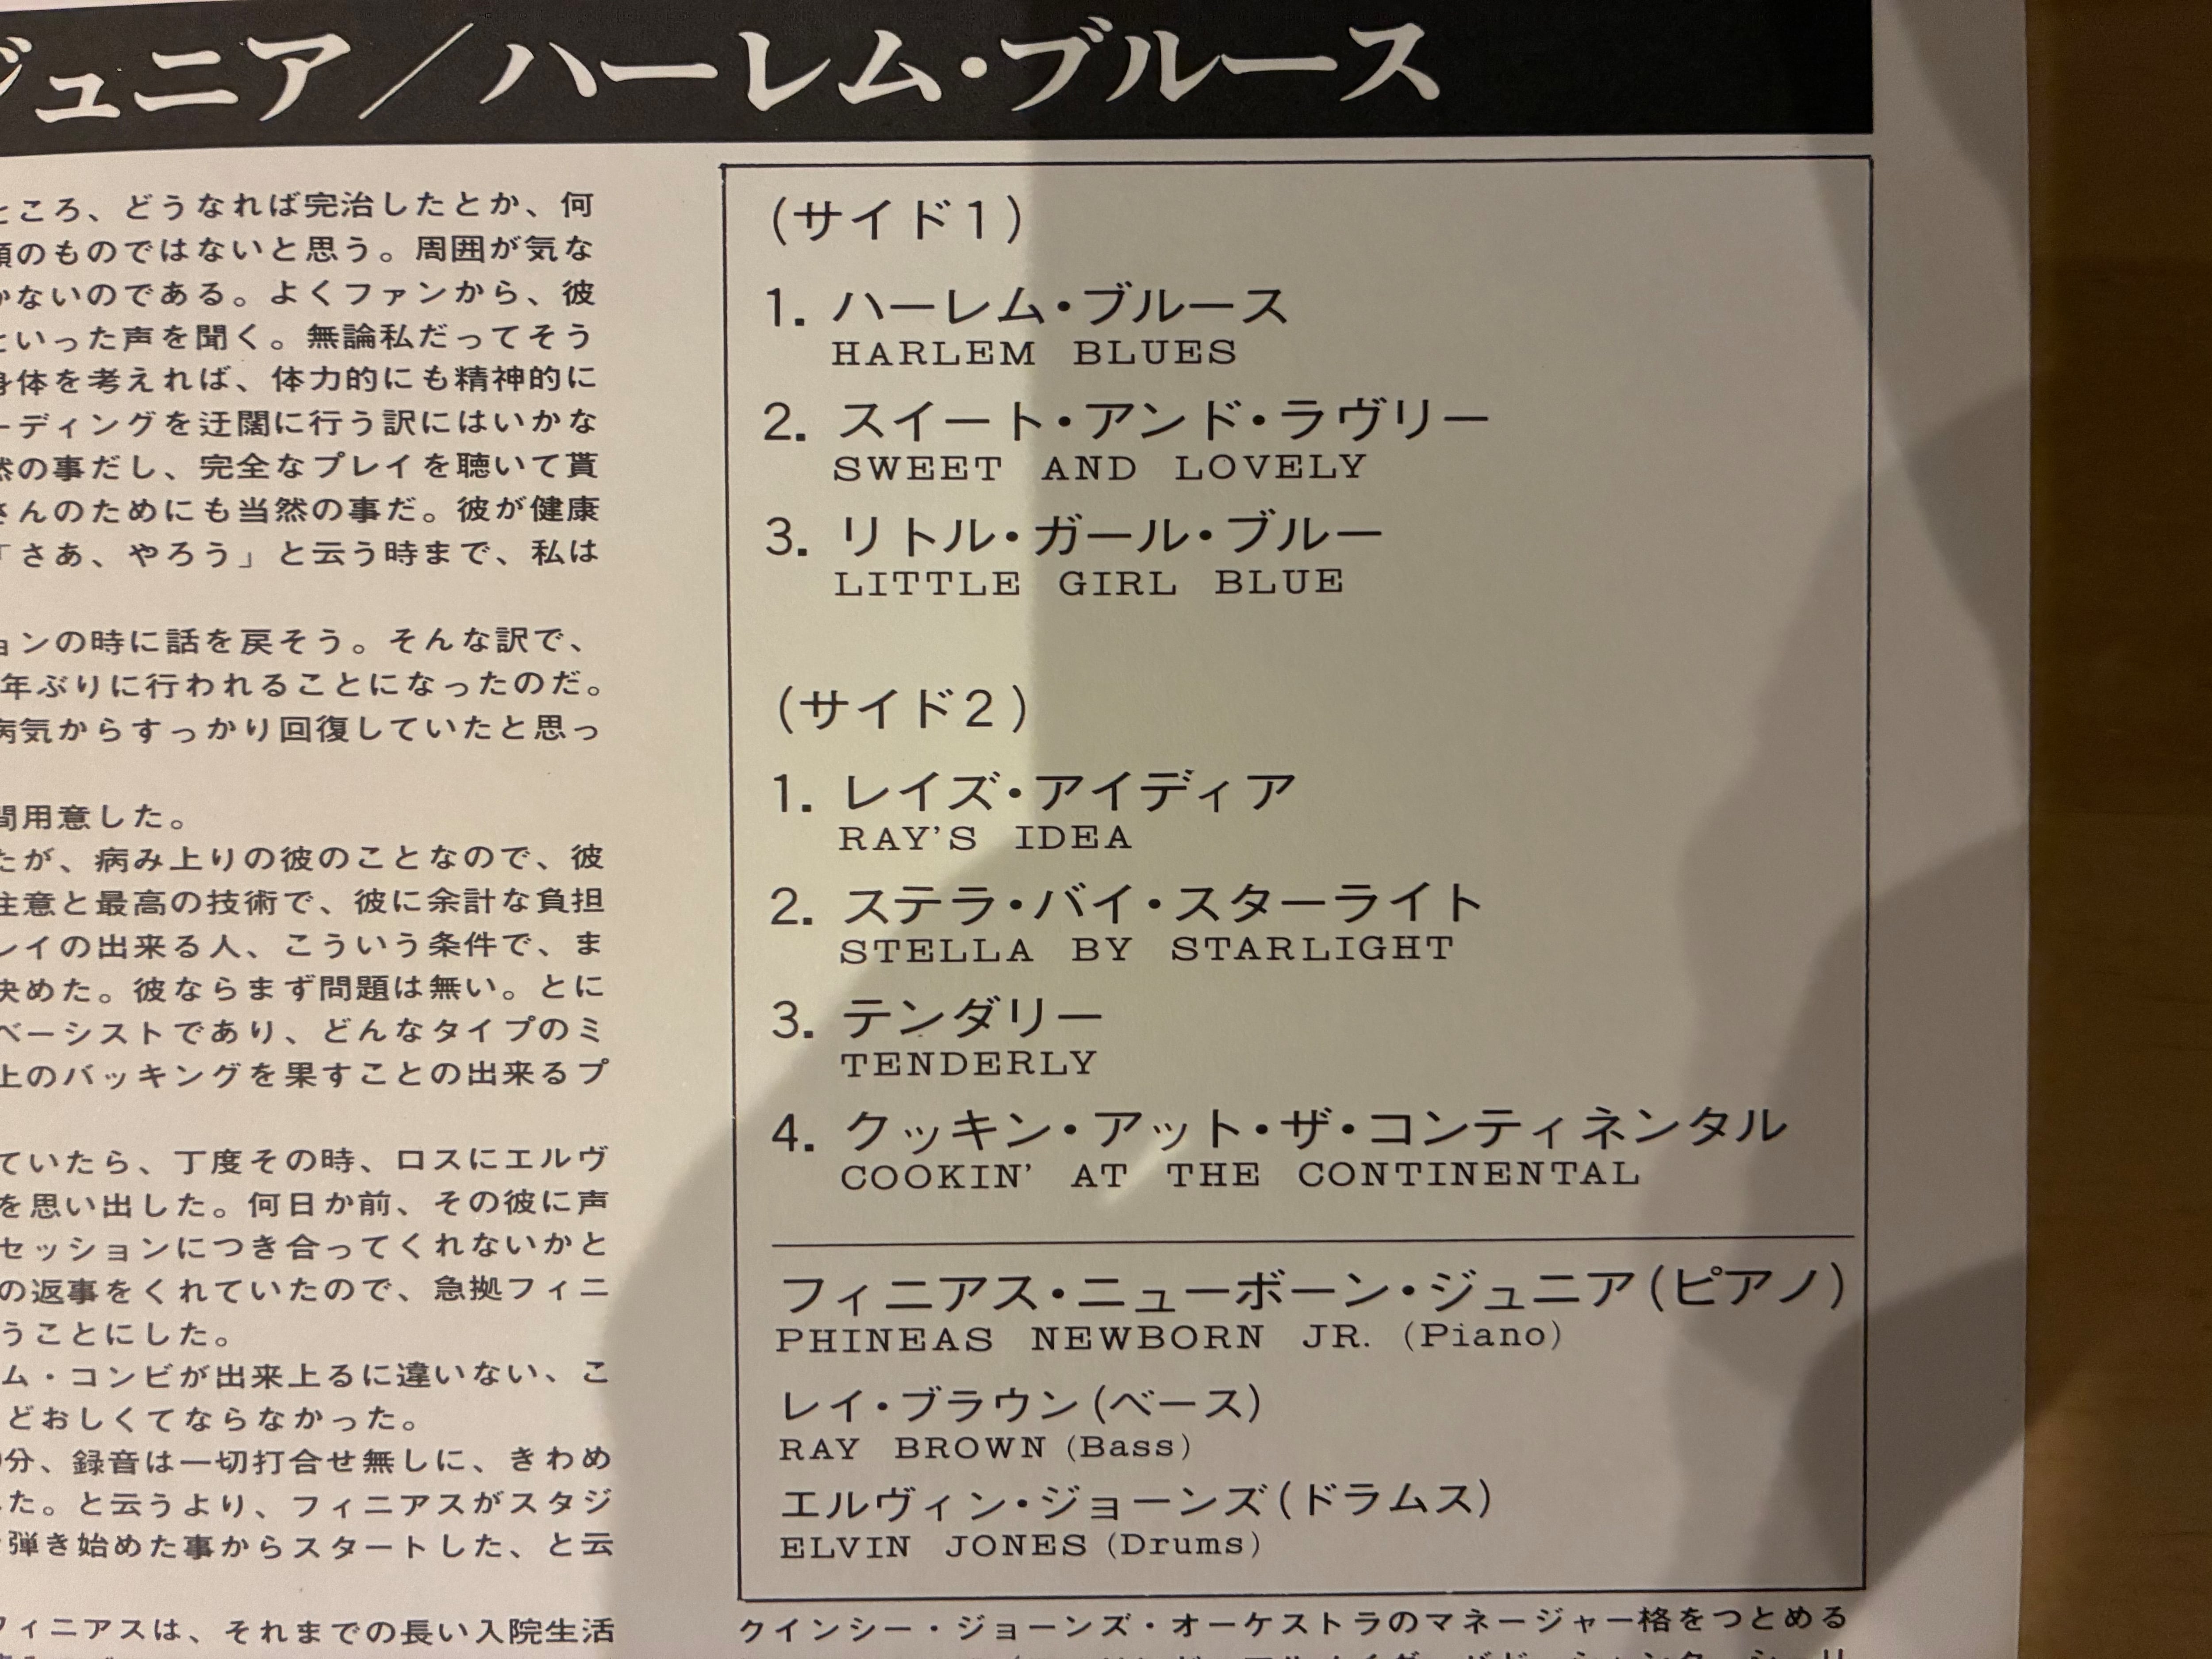 ジュニア／ハーレム・ブルース
ところ、どうなれば完治したとか、何
類のものではないと思う。周囲が気な
かないのである。よくファンから、彼
といった声を聞く。無論私だってそう
身体を考えれば、体力的にも精神的に
ーディングを迂闊に行う訳にはいかな
然の事だし、完全なプレイを聴いて貰
さんのためにも当然の事だ。彼が健康
「さあ、やろう」と云う時まで、私は
ョンの時に話を戻そう。そんな訳で、
年ぶりに行われることになったのだ。
病気からすっかり回復していたと思っ
間用意した。
たが、病み上りの彼のことなので、彼
注意と最高の技術で、彼に余計な負担
レイの出来る人、こういう条件で、ま
決めた。彼ならまず問題は無い。とに
ベーシストであり、どんなタイプのミ
上のバッキングを果すことの出来るプ
ていたら、丁度その時、ロスにエルヴ
を思い出した。何日か前、その彼に声
セッションにつき合ってくれないかと
の返事をくれていたので、急拠フィニ
うことにした。
ム・コンビが出来上るに違いない、こ
どおしくてならなかった。
分、録音は一切打合せ無しに、きわめ
た。と云うより、フィニアスがスタジ
弾き始めた事からスタートした、と云
フィニアスは、それまでの長い入院生活
(サイド1)
1. ハーレム・ブルース
HARLEM BLUES
2. スイート・アンド・ラヴリー
SWEET AND LOVELY
3. リトル・ガール・ブルー
LITTLE GIRL BLUE
(サイド2)
1. レイズ・アイディア
RAY'S IDEA
2. ステラ・バイ・スターライト
STELLA BY STARLIGHT
3. テンダリー
TENDERLY
4. クッキン・アット・ザ・コンティネンタル
COOKIN' AT THE CONTINENTAL
フィニアス・ニューボーン・ジュニア(ピアノ)
PHINEAS NEWBORN JR. (Piano)
レイ・ブラウン(ベース)
RAY BROWN (Bass)
エルヴィン・ジョーンズ(ドラムス)
ELVIN JONES (Drums)
クインシー・ジョーンズ・オーケストラのマネージャー格をつとめる